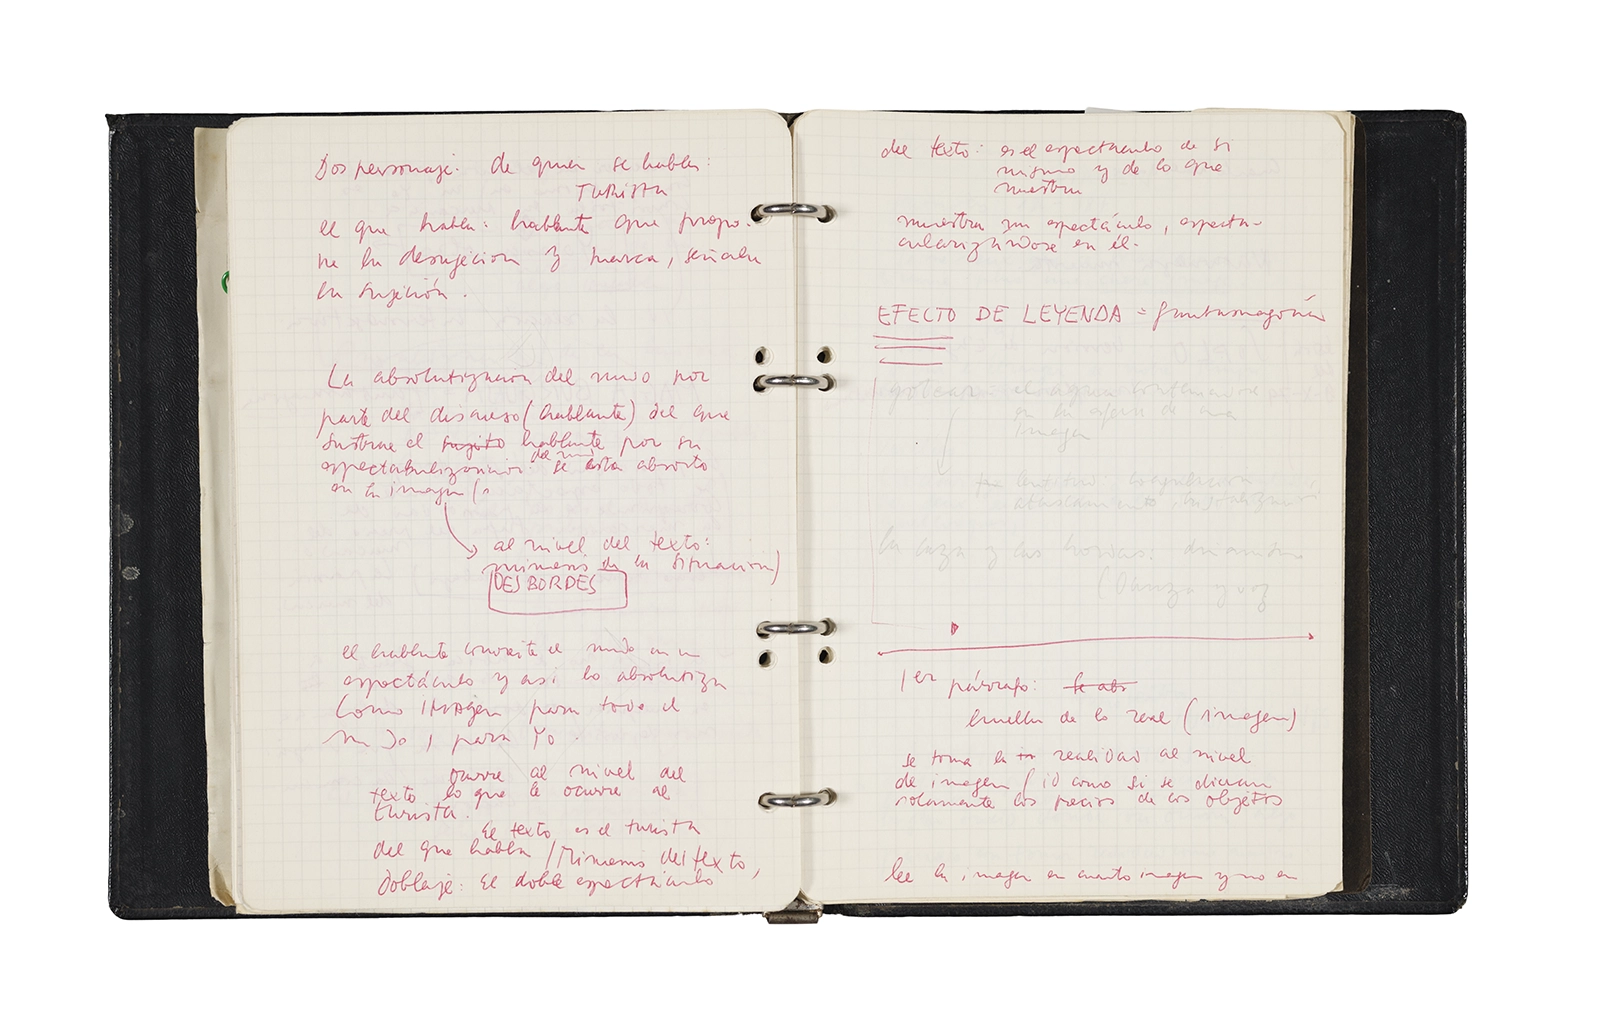 Dos personaje: de quien se habla:
TURISTA
el que habla: hablante que propo-
ne la desujecion y marca, señala
la sujeción.
La absolutización del mundo por
parte del discurso (hablante) del que
sustrae el sujeto hablante por su
espectabulización: del mundo se esta absorto
en la imagen (
al nivel del texto:
mimemis de la situación)
DESBORDES
el hablante convierte el mundo en un
espectáculo y así lo absolutiza
como imAgen para todo el
mundo, para Yo.
ocurre al nivel del
texto lo que le ocurre al
turista.
El texto es el turista
del que habla / Mimemis del texto,
doblaje: El doble espectáculo
del texto: es el espectaculo de si
mismo y de lo que
muestra
muestra un espectáculo, especta-
cularizandose en él.
EFECTO DE LEYENDA = fantasmagoría
golear: el agua
en la de una
imagen
lentitud coagulación
la caza y las
(Danza
1er párrafo: se abr
huella de lo real (imagen)
se toma la realidad al nivel
de imagen / id como si se dieran
solamente los precios de los objetos
lee la imagen en cuanto imagen y no en